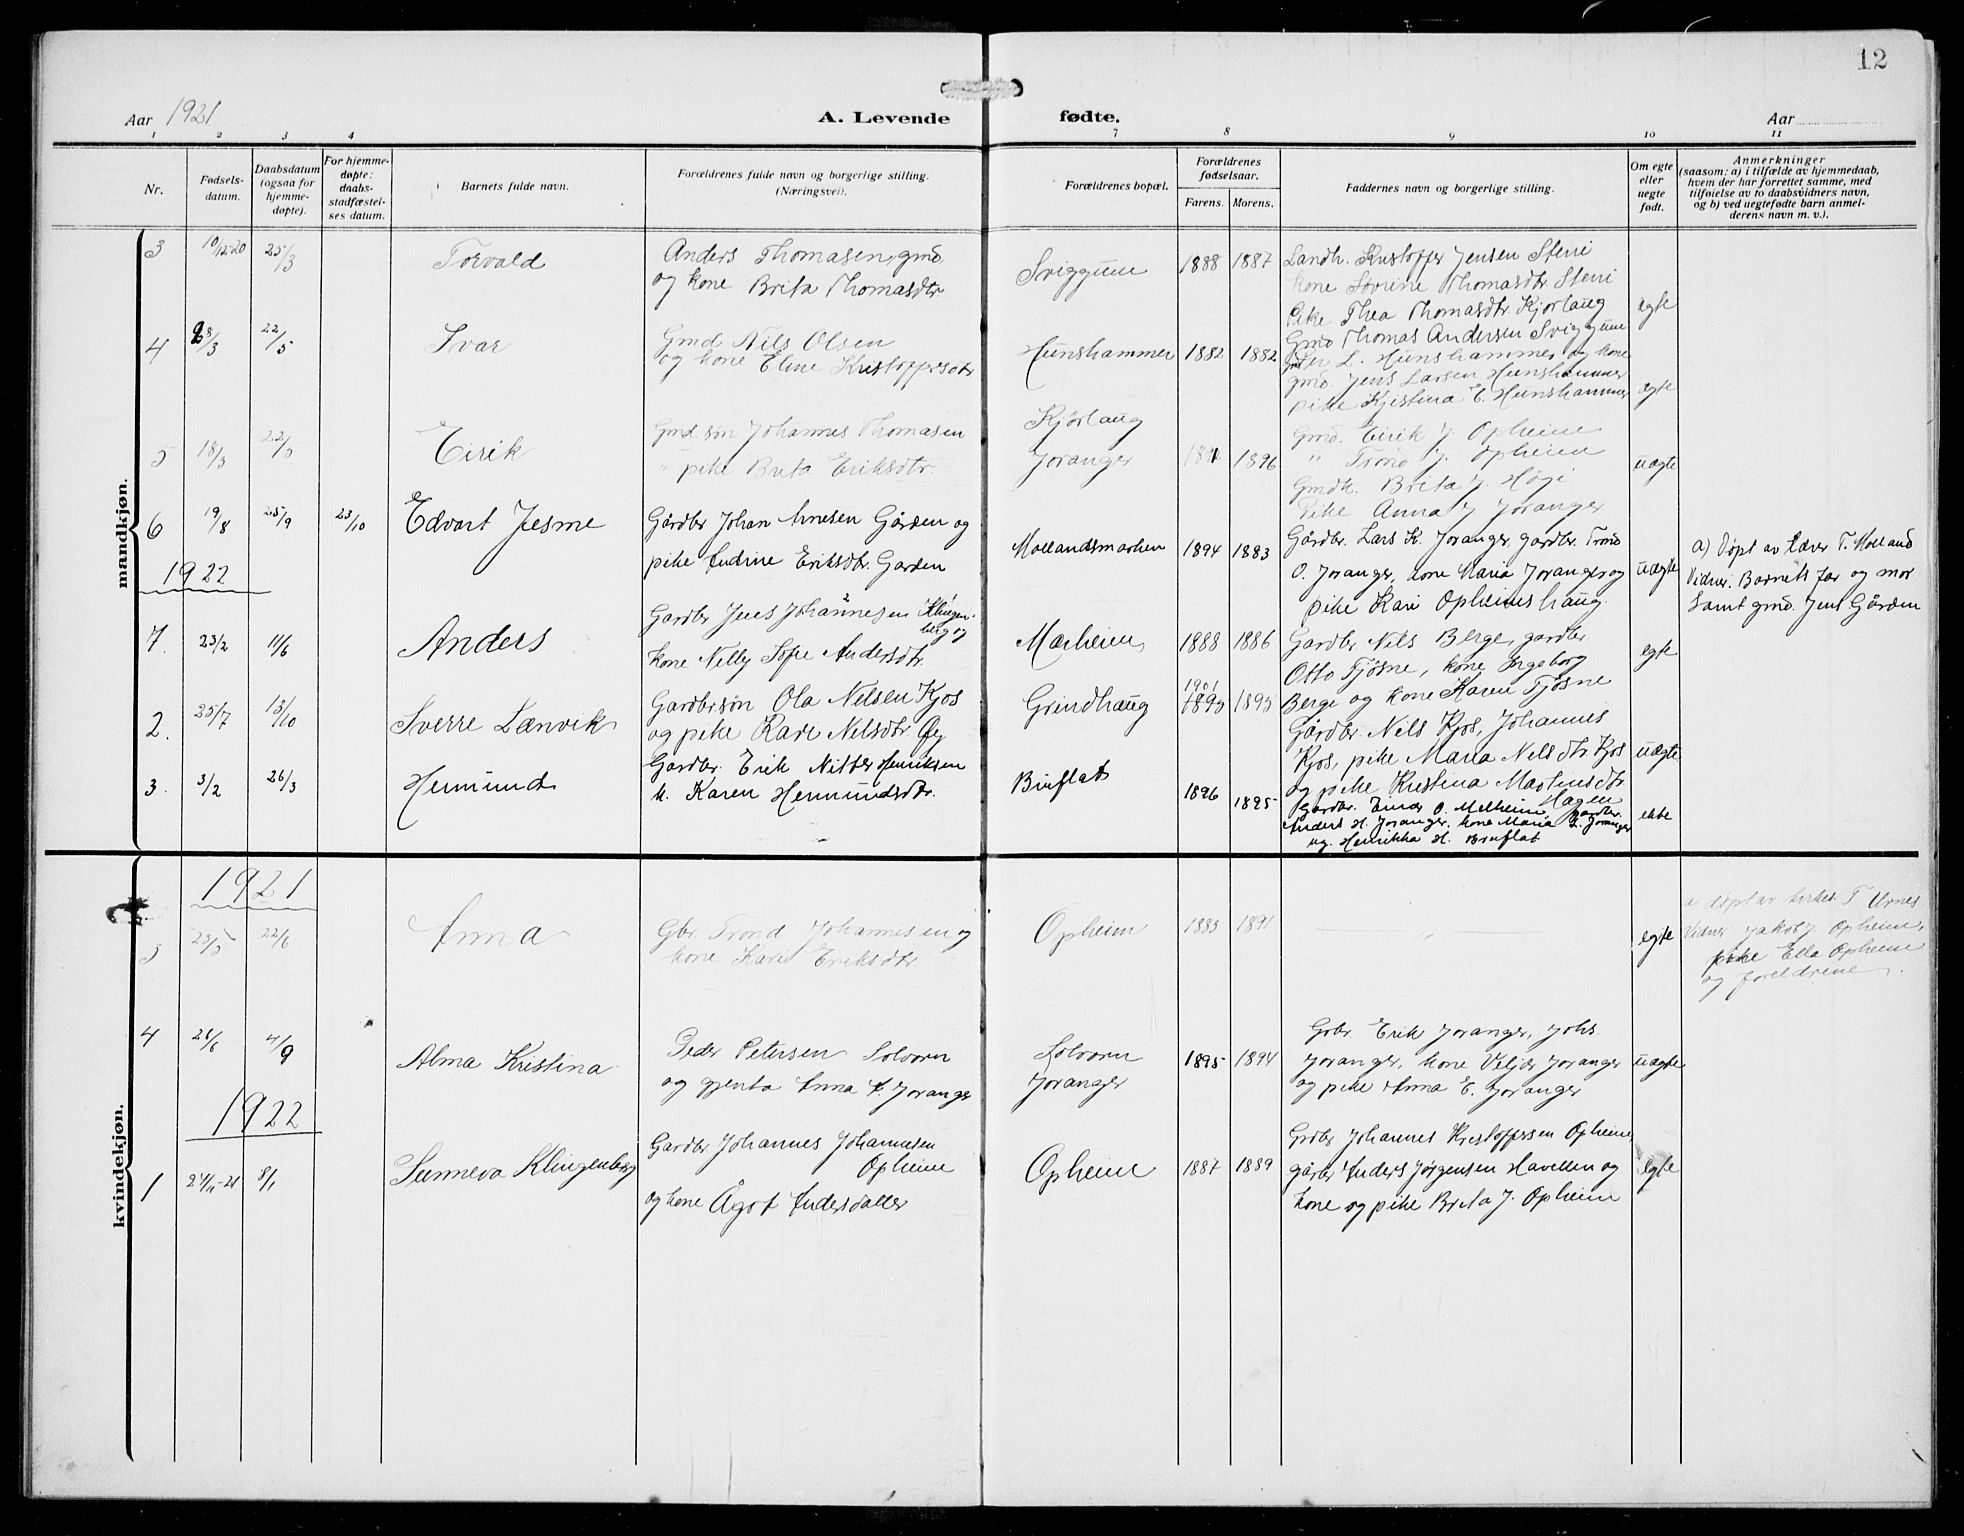 12
Aar 1921
A. Levende fødte.
Aar
1 2 3 4 7 8 9 10 11
Nr.
Fødsels-
datum.
Daabsdatum
(ogsaa for
hjemme-
døpte).
For hjemme-
døpte:
daabs-
stadfæstel-
ses datum.
Barnets fulde navn.
Forældrenes fulde navn og borgerlige stilling.
(Næringsvei).
Forældrenes bopæl.
Forældrenes
fødselsaar.
Farens. Morens.
Faddernes navn og borgerlige stilling.
Om egte
eller
uegte
født.
Anmerkninger
(saasom: a) i tilfælde av hjemmedaab,
hvem der har forrettet samme, med
tilføielse av to daabsvidners navn,
og b) ved uegtefødte barn anmel-
derens navn m. v.).
mandkjøn.
3 10/12-20 25/3 Torvald
Anders Thomasen, gmd
og kone Brita Thomasdtr
Sviggum 1888 1887
Landh. Kristoffer Jensen Sterri
kone Søvrine Thomasdtr Sterri
Pike Thea Thomasdtr Kjørlaug
Gmd Thomas Andersen Sviggum
egte
4 28/3 22/5 Ivar
Gmd Nils Olsen
og kone Eline Kristoffersdtr
Hunshammer 1882 1882
L. Hunshammer og kone
gmd. Jens Larsen Hunshammer
pike Kjistina E. Hunshammer
egte
5 18/3 22/5 Eirik
Gmd søn Johannes Thomasen
" pike Brita Eriksdtr.
Kjørlaug
Joranger 1891 1896
Gmd. Eirik J. Opheim
" Trond J. Opheim
Gmdk. Brita J. Høgi
Pike Anna J Joranger
uegte
6 19/8 25/9 23/10 Edvart Jesme
Gårdbr Johan Arnesen Gården og
pike Andrine Eriksdtr. Garden
Mollandsmarken 1894 1883
Gårdbr. Lars K. Joranger, gardbr. Trond
O. Joranger, kone Maria Joranger og
pike Kari Opheimshaug.
uægte
a) Døpt av Lærer T. Molland
Vidner. Barnets far og mor
samt gmd. Jens Gården
1922
7. 23/2 11/6 Anders
Gardbr Jens Johannesen Klingen-
berg og
kone Nelly Sofie Andersdtr
Marheim 1888 1886
Gardbr Nils Berge, gardbr
Otto Tjøsne, kone Ingeborg
Berge og kone Karen Tjøsne
egte
2. 25/7 13/10 Sverre Lænvik
Gardbrsøn Ola Nilsen Kjos
og pike Kari Nilsdtr. Øy
Grindhaug 1901
1895 1895
Gårdbr. Nils Kjos, Johannes
Kjos, pike Maria Nilsdtr Kjos
og pike Kristina Martinsdtr
Hagen
uægte
3. 3/2 26/3 Hermund
Gardbr. Erik Nitter Henriksen
k. Karen Hermundsdtr.
Bruflat 1896 1895
Gardbr. Einar O. Melheim, gardbr.
Anders H. Joranger. kone Maria L. Joranger
og. Henrikka H. Bruflat
ekte
kvindekjøn.
1921
3 23/5 22/6 Anna
Gbr. Trond Johannesen og
kone Kari Eriksdtr
Opheim 1885 1891
egte
a) døpt av kirkes. T Urnes
Vidner Jakob J. Opheim,
pike Ella Opheim
og foreldrene.
4 26/6 4/9 Alma Kristina
Peder Petersen Solvorn
og gjenta Anna A. Joranger
Solvorn
Joranger 1895 1894
Gobr. Erik Joranger, Johs
Joranger, kone Veljer Joranger
og pike Anna E. Joranger
uægte
1922
1 24/11-21 8/1 Sunneva Klingenberg
Gardbr Johannes Johannesen
Opheim
og kone Ågot Andersdatter
Opheim 1887 1889
Grdbr Johannes Kristoffersen Opheim
gårbr Anders Jørgensen Havellen og
kone og pike Brita J. Opheim
egte